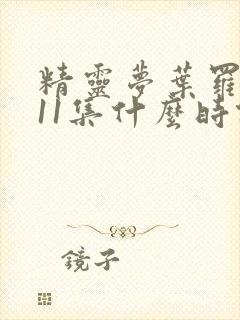 精靈夢葉羅
11集什麼時
鏡子